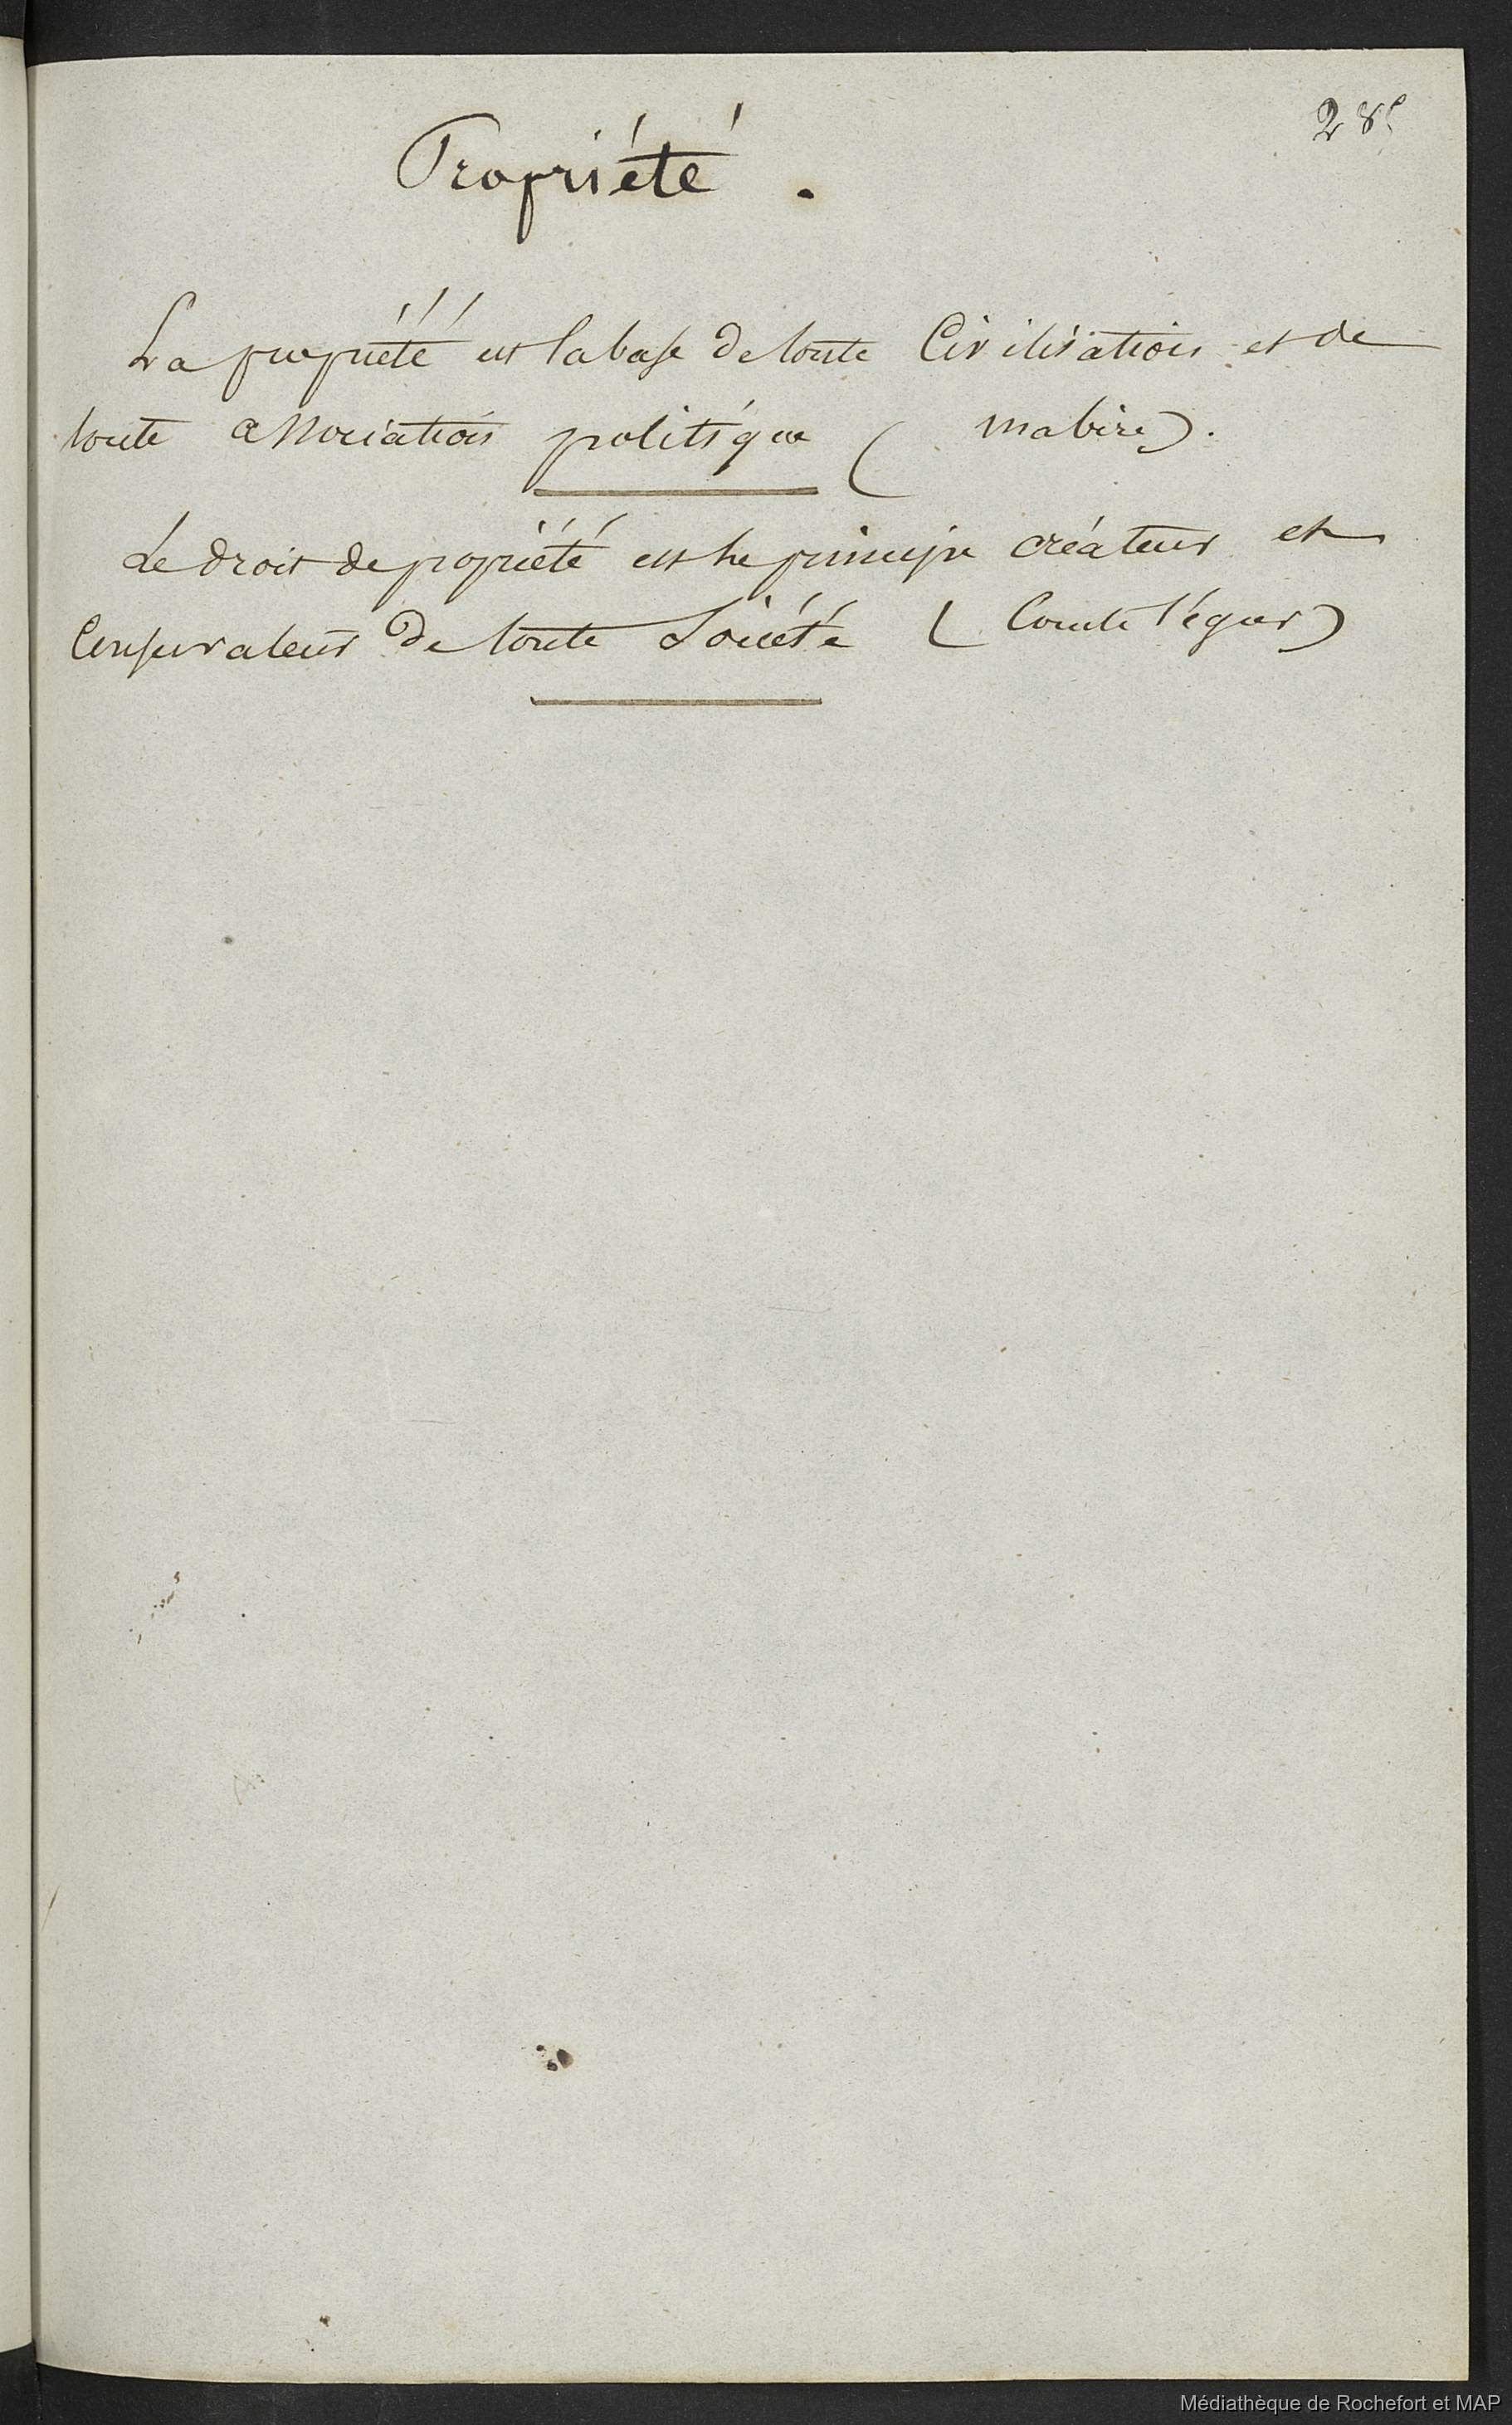 285
Propriété.
La propriété est la base de toute Civilisation et de
toute association politique ( mabire ).
Le droit de propriété est le principe créateur et
Conservateur de toute Société ( Comte Ségur )
Médiathèque de Rochefort et MAP